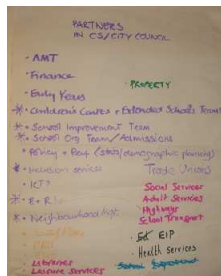 PARTNERS
IN CS/CITY COUNCIL
• AMT
• Finance
PROPERTY
• Early Years
* • Children's Centres + Extended Schools Team
* • School Improvement Team
* • School Org Team/Admissions
• Policy + Perf (stats/demographic planning)
* • Inclusion services
Trade Unions
• ICT?
Social Services
* • E + R
Adult Services
Highways
* • Neighbourhood
School Transport
• EIP
• Health Services
Libraries
Leisure Services